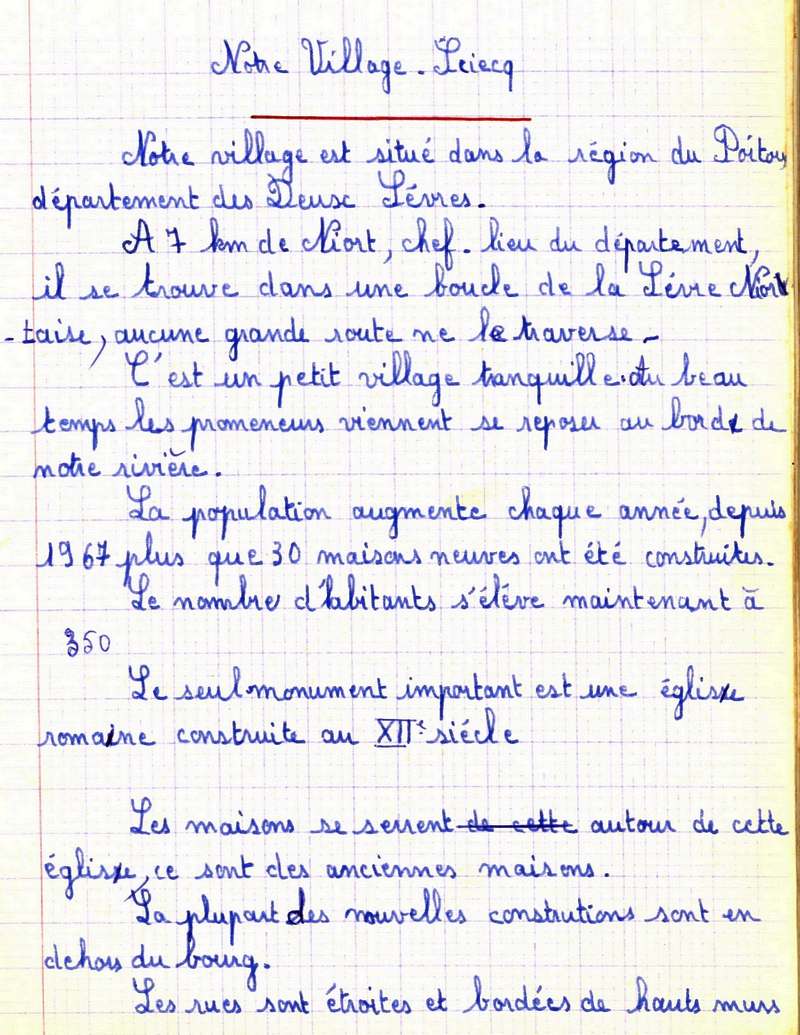 Notre Village - Sciecq
Notre village est situé dans la région du Poitou,
département des Deux Sévres.
A 7 km de Niort, chef-lieu du département,
il se trouve dans une boucle de la Sévre Nior
-taise, aucune grande route ne le traverse -
C'est un petit village tranquille. Au beau
temps les promeneurs viennent se reposer au bord de
notre rivière.
La population augmente chaque année, depuis
1967 plus que 30 maisons neuves ont été construites.
Le nombre d'habitants s'éléve maintenant à
350
Le seul monument important est une église
romaine construite au XIIe siécle
Les maisons se serrent de cette autour de cette
église, ce sont des anciennes maisons.
La plupart des nouvelles construtions sont en
dehors du bourg.
Les rues sont étroites et bordées de hauts murs